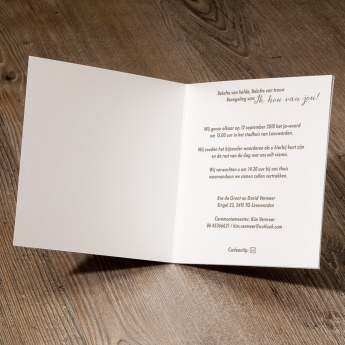 Belofte van liefde, Belofte van trouw
Bezegeling van Ik hou van jou!
Wij geven elkaar op 12 september 2018 het ja-woord
om 15.00 uur in het stadhuis van Leeuwarden.
Wij zouden het bijzonder waarderen als u hierbij kunt zijn
en de rest van de dag met ons wilt vieren.
Wij verwachten u om 14.20 uur bij ons thuis
waarvandaan we samen zullen vertrekken.
Eva de Groot en David Vermeer
Singel 22, 2415 TG Leeuwarden
Ceremoniemeester: Kim Vermeer
06 45366621 / kim.vermeer@outlook.com
Cadeautip: